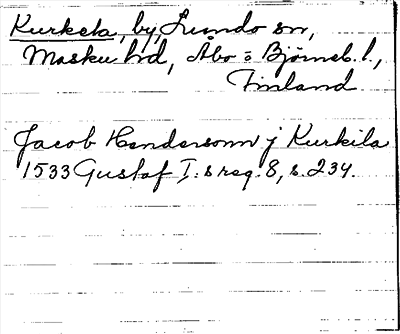 Kurkela, by, Lundo sn,
Masku hd, Åbo o Björneb. l.,
Finland
Jacob Hendersonn j Kurkila
1533 Gustaf I:s reg. 8, s. 234.